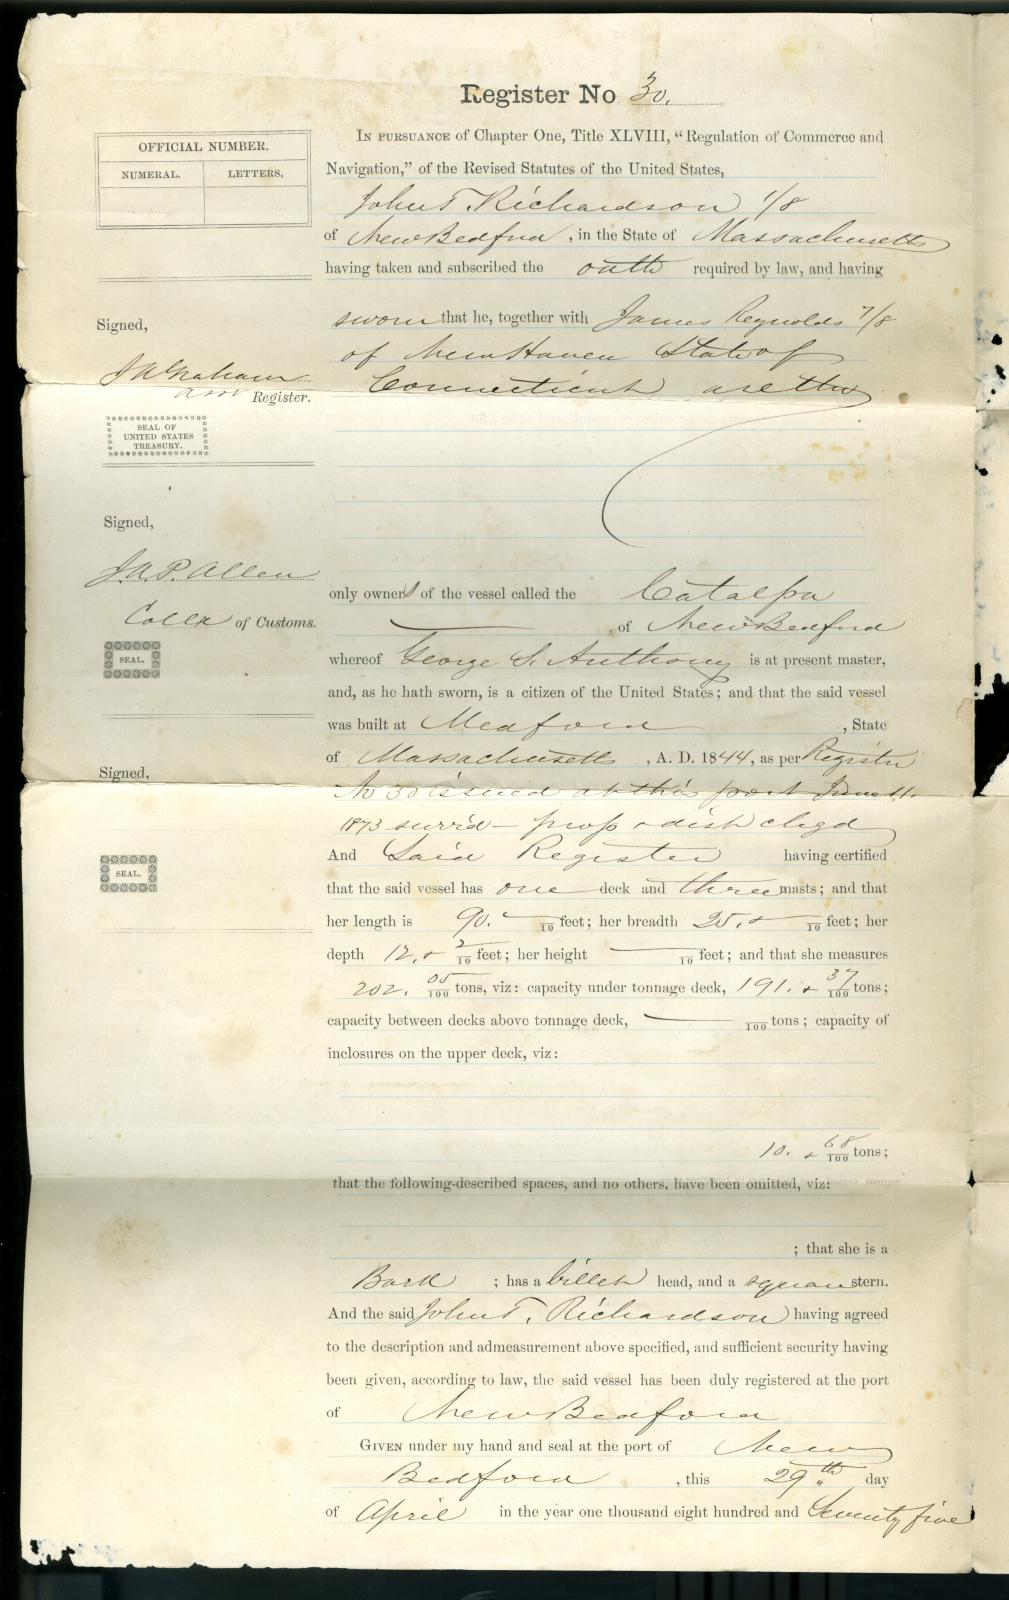 Register No 30.
OFFICIAL NUMBER.
NUMERAL. LETTERS.
IN PURSUANCE of Chapter One, Title XLVIII, "Regulation of Commerce and
Navigation," of the Revised Statutes of the United States,
John T. Richardson 1/8
of New Bedford, in the State of Massachusetts
having taken and subscribed the oath required by law, and having
sworn that he, together with James Reynolds 7/8
of New Haven State of
Connecticut are the
Signed,
Register.
SEAL OF
UNITED STATES
TREASURY.
Signed,
J.A.P. Allen
Collr of Customs.
SEAL.
Signed,
SEAL.
only owners of the vessel called the Catalpa
of New Bedford
whereof George S. Anthony is at present master,
and, as he hath sworn, is a citizen of the United States; and that the said vessel
was built at Medford, State
of Massachusetts, A. D. 1844, as per Register
No 30 issued at this port June 11.
1873 surrd - prop & dist chgd
And Said Register having certified
that the said vessel has one deck and three masts; and that
her length is 90. /10 feet; her breadth 25. & /10 feet; her
depth 12. & 2/10 feet; her height /10 feet; and that she measures
202. 05/100 tons, viz: capacity under tonnage deck, 191. & 37/100 tons;
capacity between decks above tonnage deck, /100 tons; capacity of
inclosures on the upper deck, viz:
10. & 68/100 tons;
that the following-described spaces, and no others, have been omitted, viz:
; that she is a
Bark; has a billet head, and a square stern.
And the said John T. Richardson having agreed
to the description and admeasurement above specified, and sufficient security having
been given, according to law, the said vessel has been duly registered at the port
of New Bedford
GIVEN under my hand and seal at the port of New
Bedford, this 29th day
of April in the year one thousand eight hundred and Seventy five